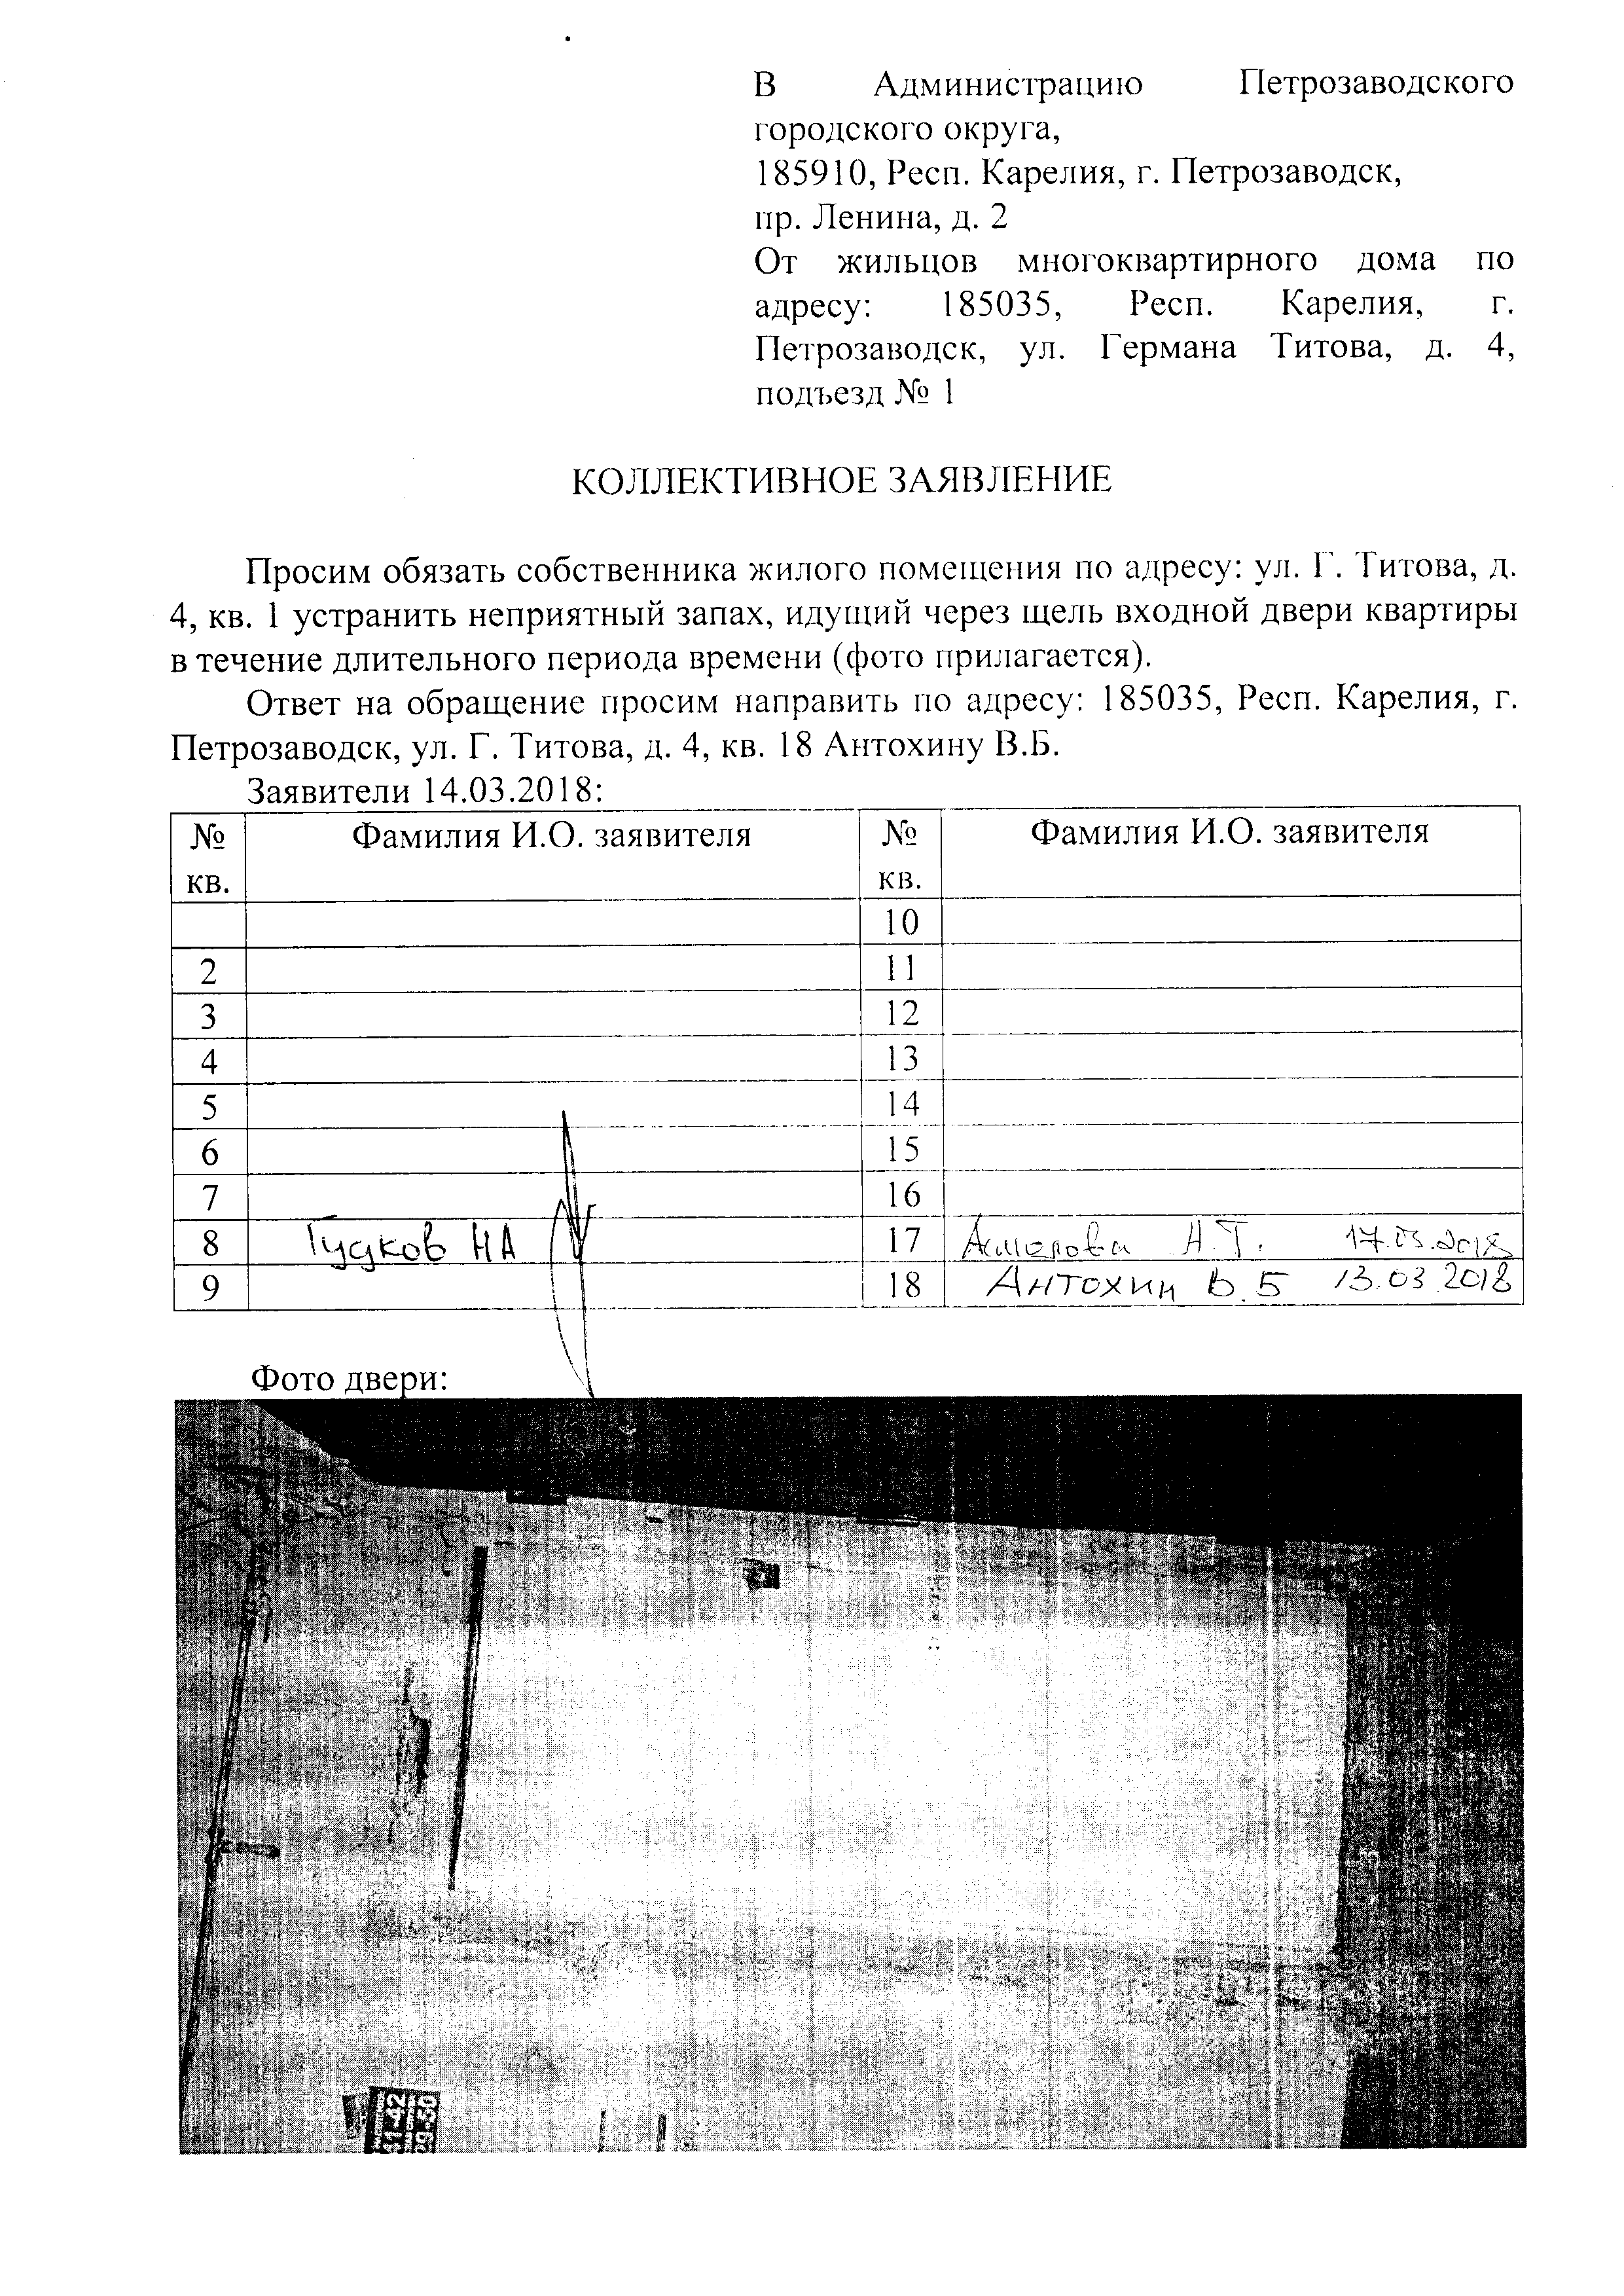 В Администрацию Петрозаводского
городского округа,
185910, Респ. Карелия, г. Петрозаводск,
пр. Ленина, д. 2
От жильцов многоквартирного дома по
адресу: 185035, Респ. Карелия, г.
Петрозаводск, ул. Германа Титова, д. 4,
подъезд № 1
КОЛЛЕКТИВНОЕ ЗАЯВЛЕНИЕ
Просим обязать собственника жилого помещения по адресу: ул. Г. Титова, д.
4, кв. 1 устранить неприятный запах, идущий через щель входной двери квартиры
в течение длительного периода времени (фото прилагается).
Ответ на обращение просим направить по адресу: 185035, Респ. Карелия, г.
Петрозаводск, ул. Г. Титова, д. 4, кв. 18 Антохину В.Б.
Заявители 14.03.2018:
№ кв. Фамилия И.О. заявителя № кв. Фамилия И.О. заявителя
10
2 11
3 12
4 13
5 14
6 15
7 16
8 Гудков НА 17 Н.Т. 17.03.2018
9 18 Антохин В.Б 13.03.2018
Фото двери: